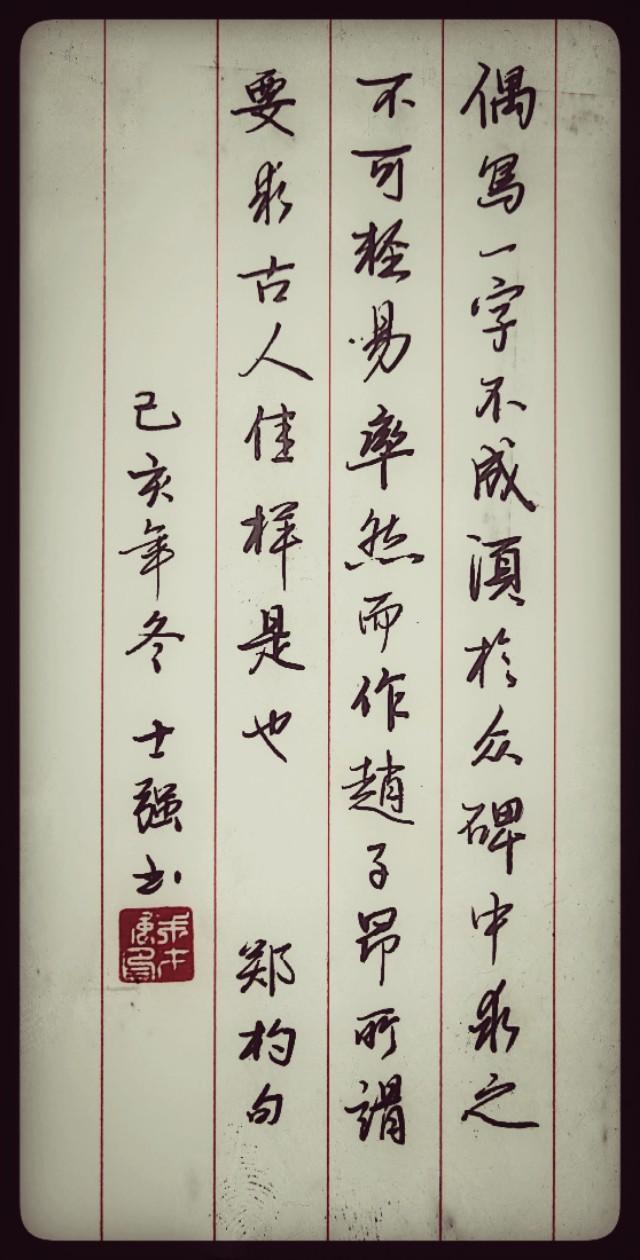 偶寫一字不成須於众碑中求之
不可輕易率然而作趙子昂所謂
要求古人佳样是也 郑杓句
己亥年冬 士强书